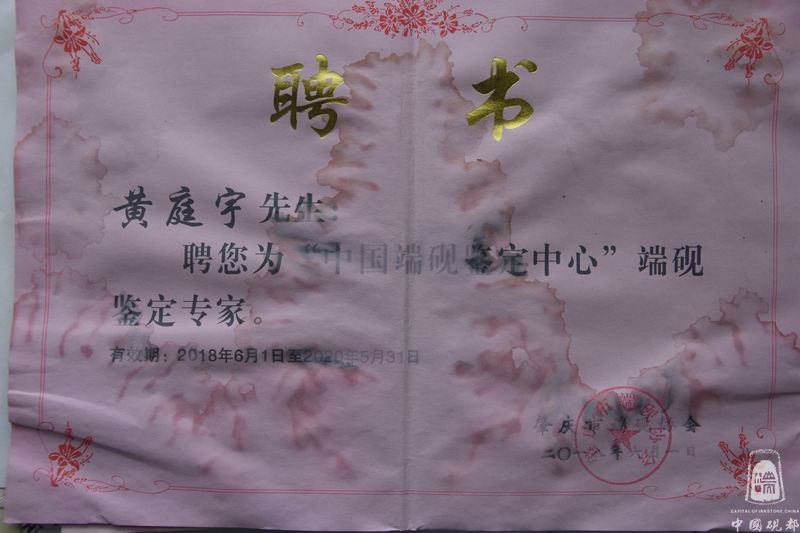 聘书
黄庭宇先生：
聘您为“中国端砚鉴定中心”端砚
鉴定专家。
有效期：2018年6月1日至2020年5月31日
肇庆市端砚协会
二〇一 年六月一日
端
CAPITAL OF INKSTONE, CHINA
中國硯都